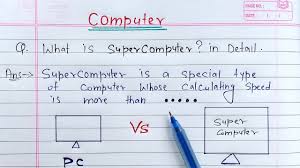 Computer
Q. What is SuperComputer? in Detail.
Ans:-> SuperComputer is a special type
of Computer whose Calculating Speed
is more than •••••
Vs
Super
Computer
PC